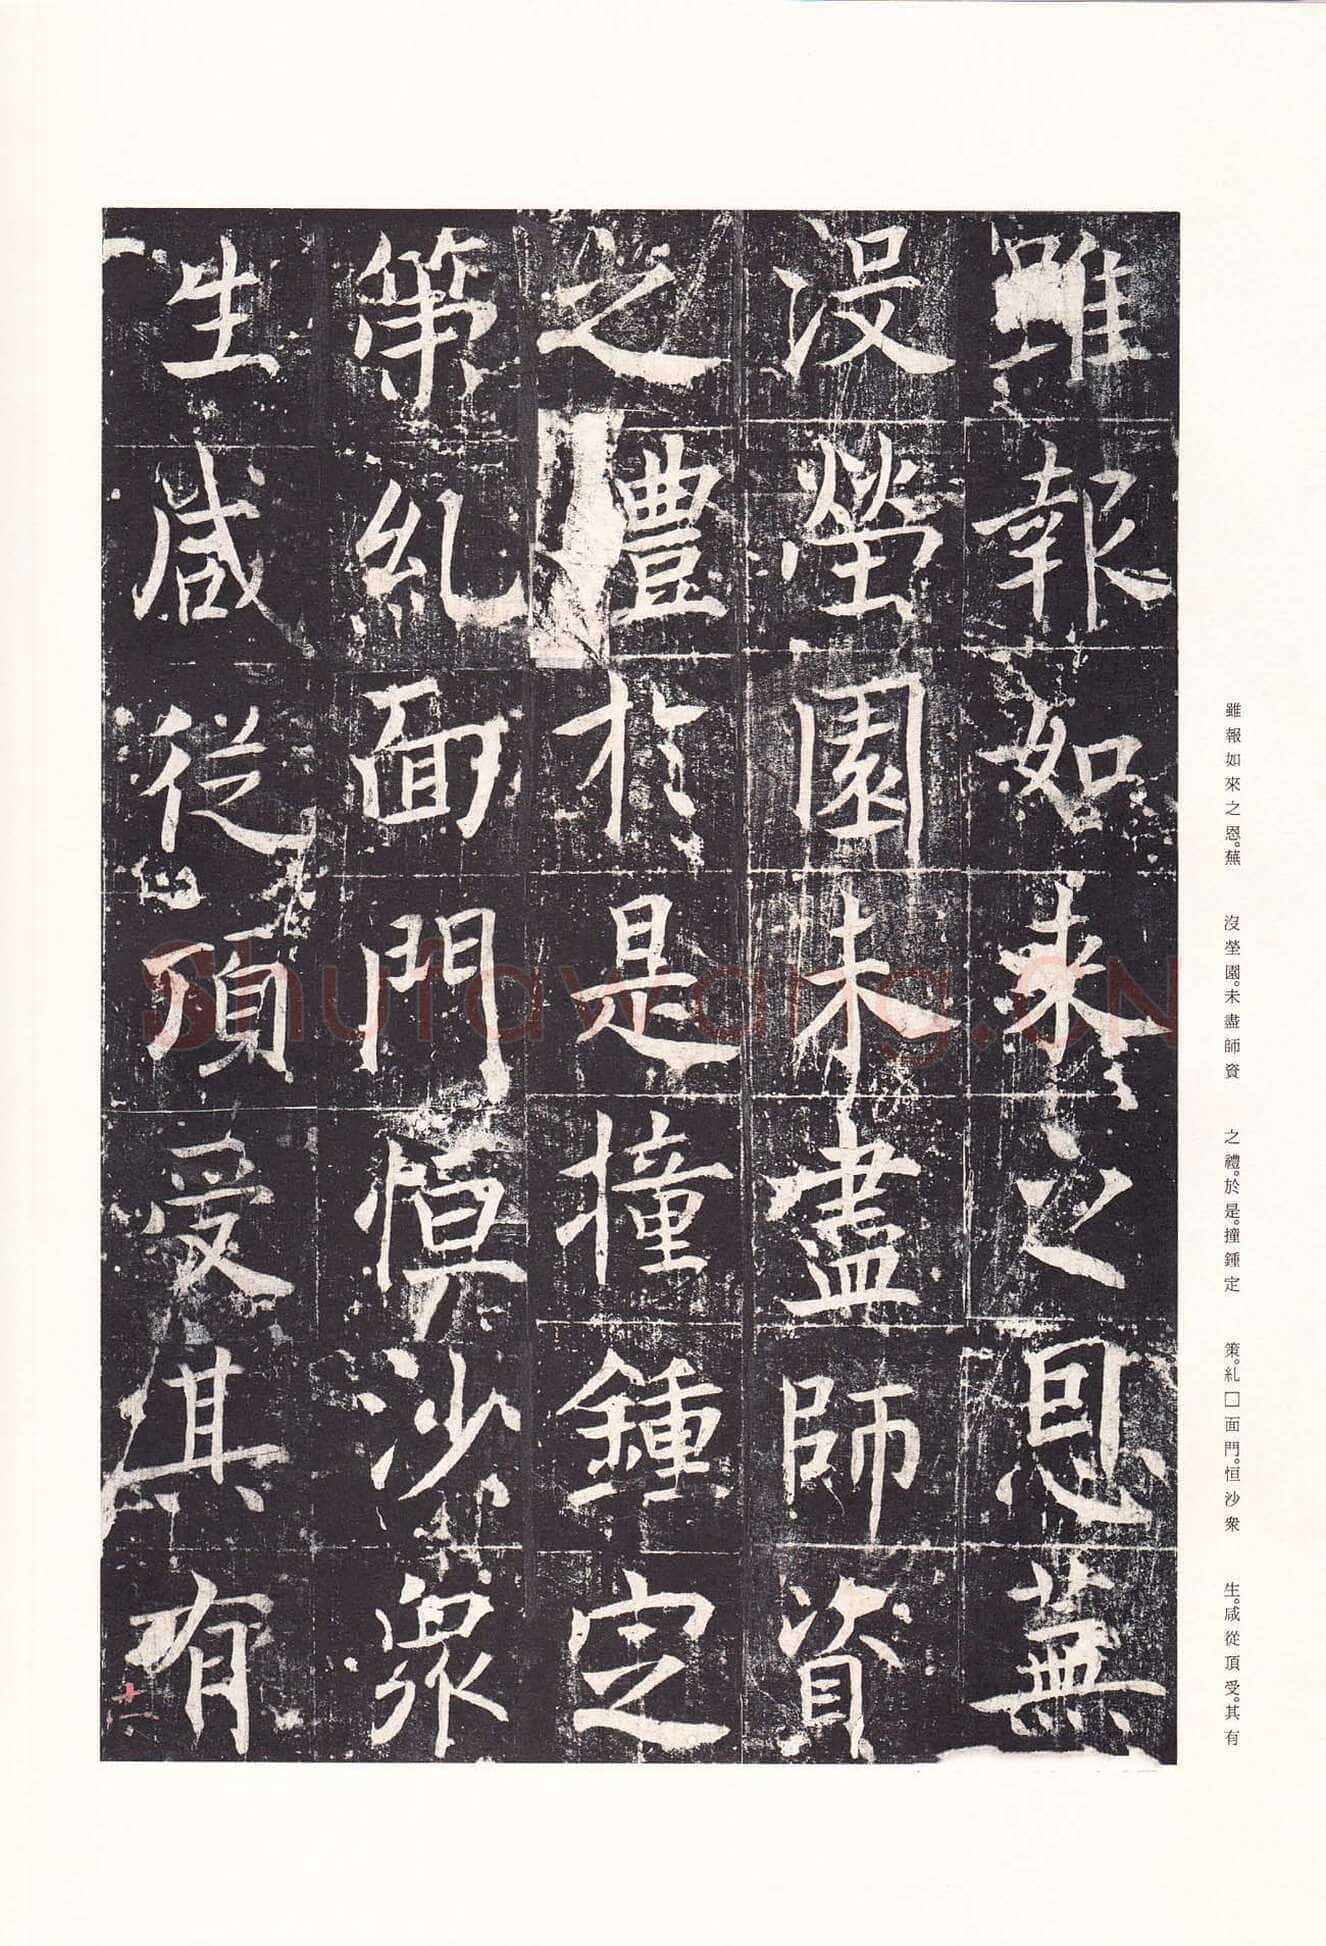 雖報如來之恩蕪
沒塋園未盡師資
之禮於是撞鍾定
策糺面門恒沙衆
生咸從頂受其有
十一
雖報如來之恩。蕪
沒塋園。未盡師資
之禮。於是。撞鍾定
策。糺□面門。恒沙衆
生。咸從頂受。其有
Shufawang.CN